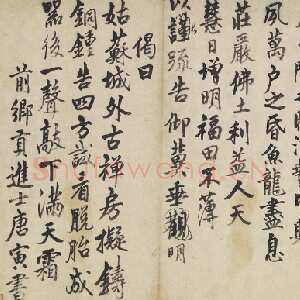 風萬戶之昏魚龍盡息
莊嚴佛土利益人天
慧日增明福田不薄
以謹疏告仰冀垂觀明
偈曰
姑蘇城外古禪房擬鑄
銅鍾告四方試看脫胎成
器後一聲敲下滿天霜
前鄉貢進士唐寅書